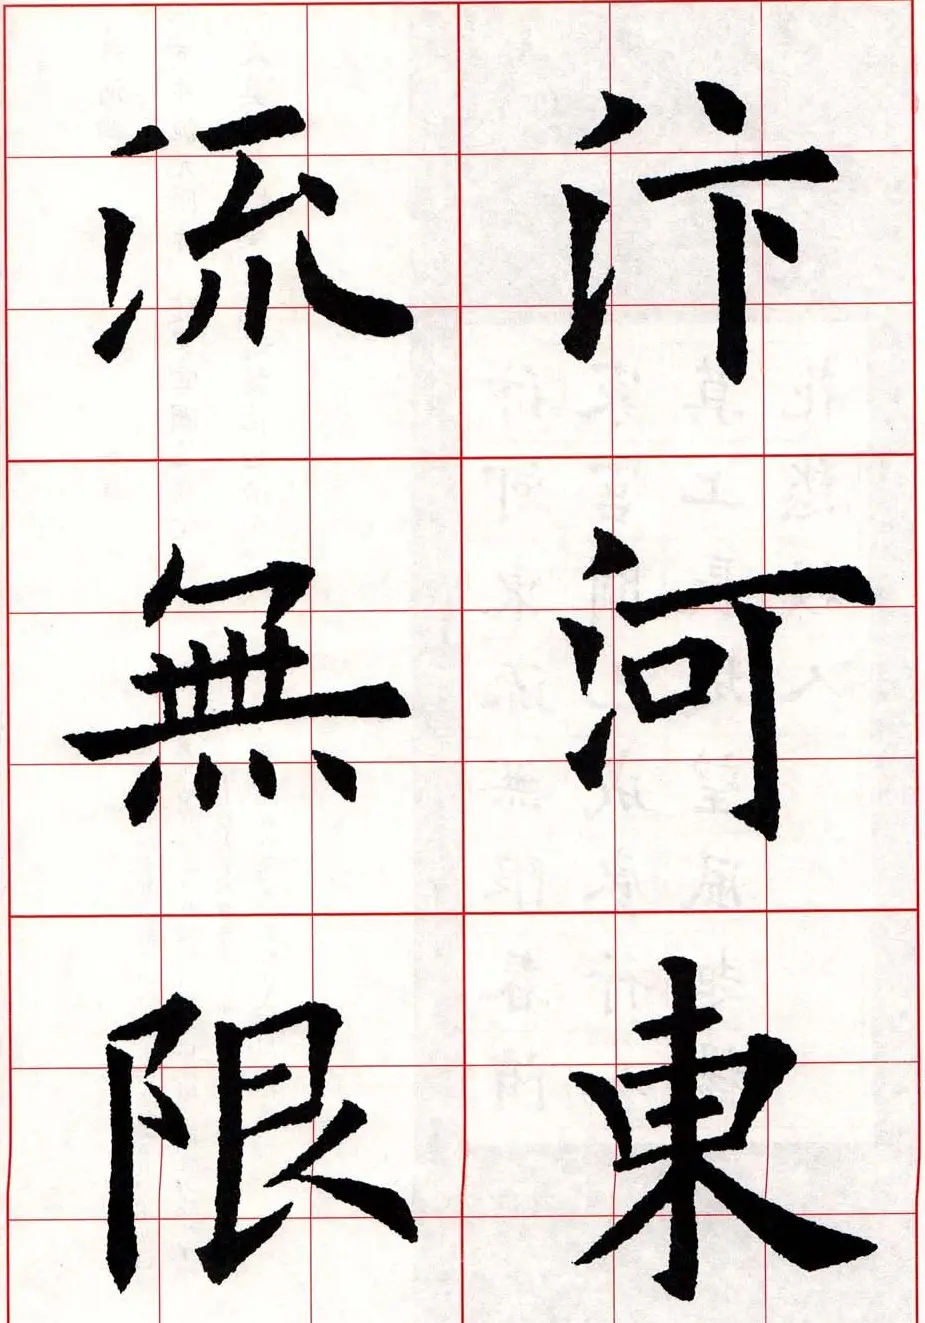 汴河東
流無限